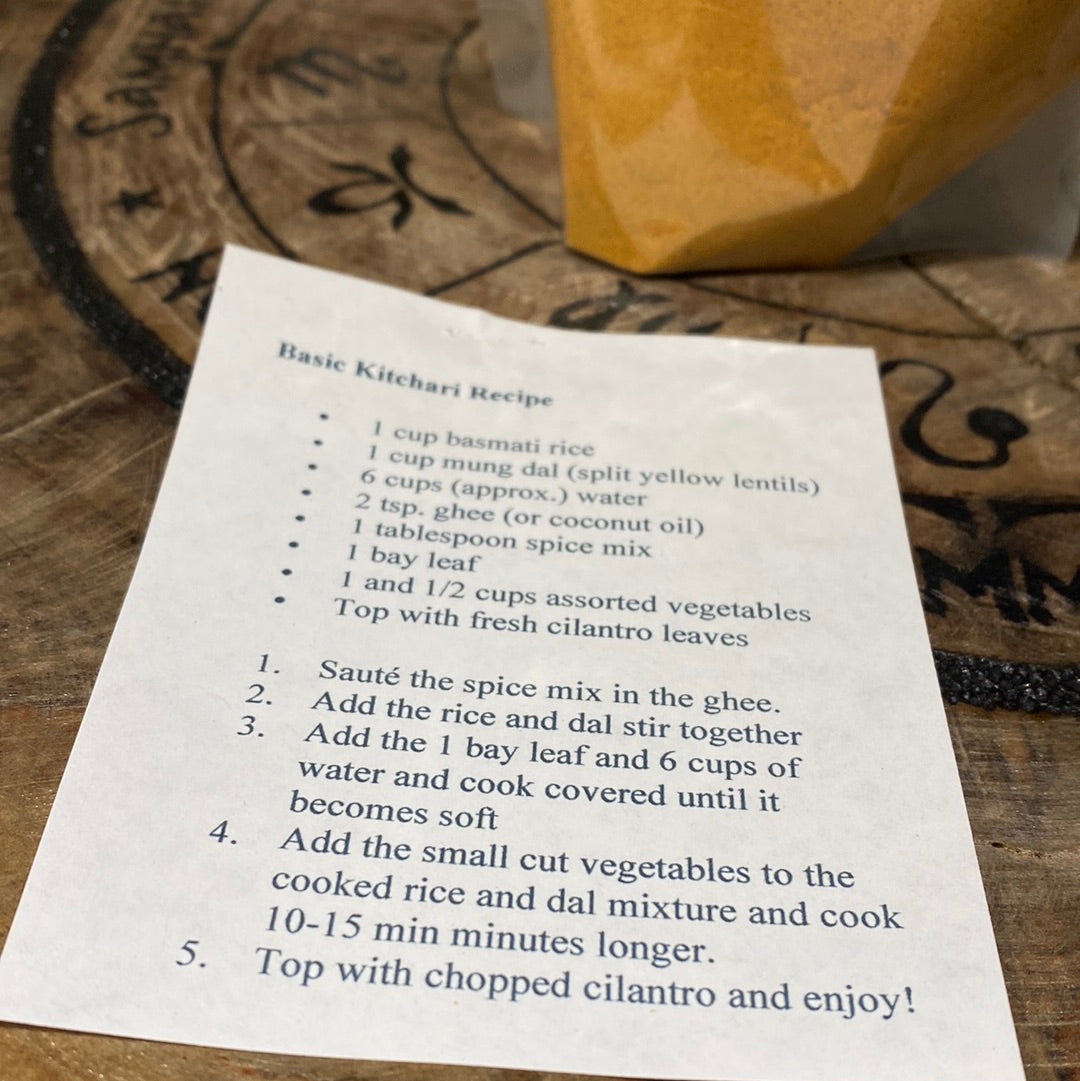 Basic Kitchari Recipe
• 1 cup basmati rice
• 1 cup mung dal (split yellow lentils)
• 6 cups (approx.) water
• 2 tsp. ghee (or coconut oil)
• 1 tablespoon spice mix
• 1 bay leaf
• 1 and 1/2 cups assorted vegetables
• Top with fresh cilantro leaves
1. Sauté the spice mix in the ghee.
2. Add the rice and dal stir together
3. Add the 1 bay leaf and 6 cups of
water and cook covered until it
becomes soft
4. Add the small cut vegetables to the
cooked rice and dal mixture and cook
10-15 min minutes longer.
5. Top with chopped cilantro and enjoy!